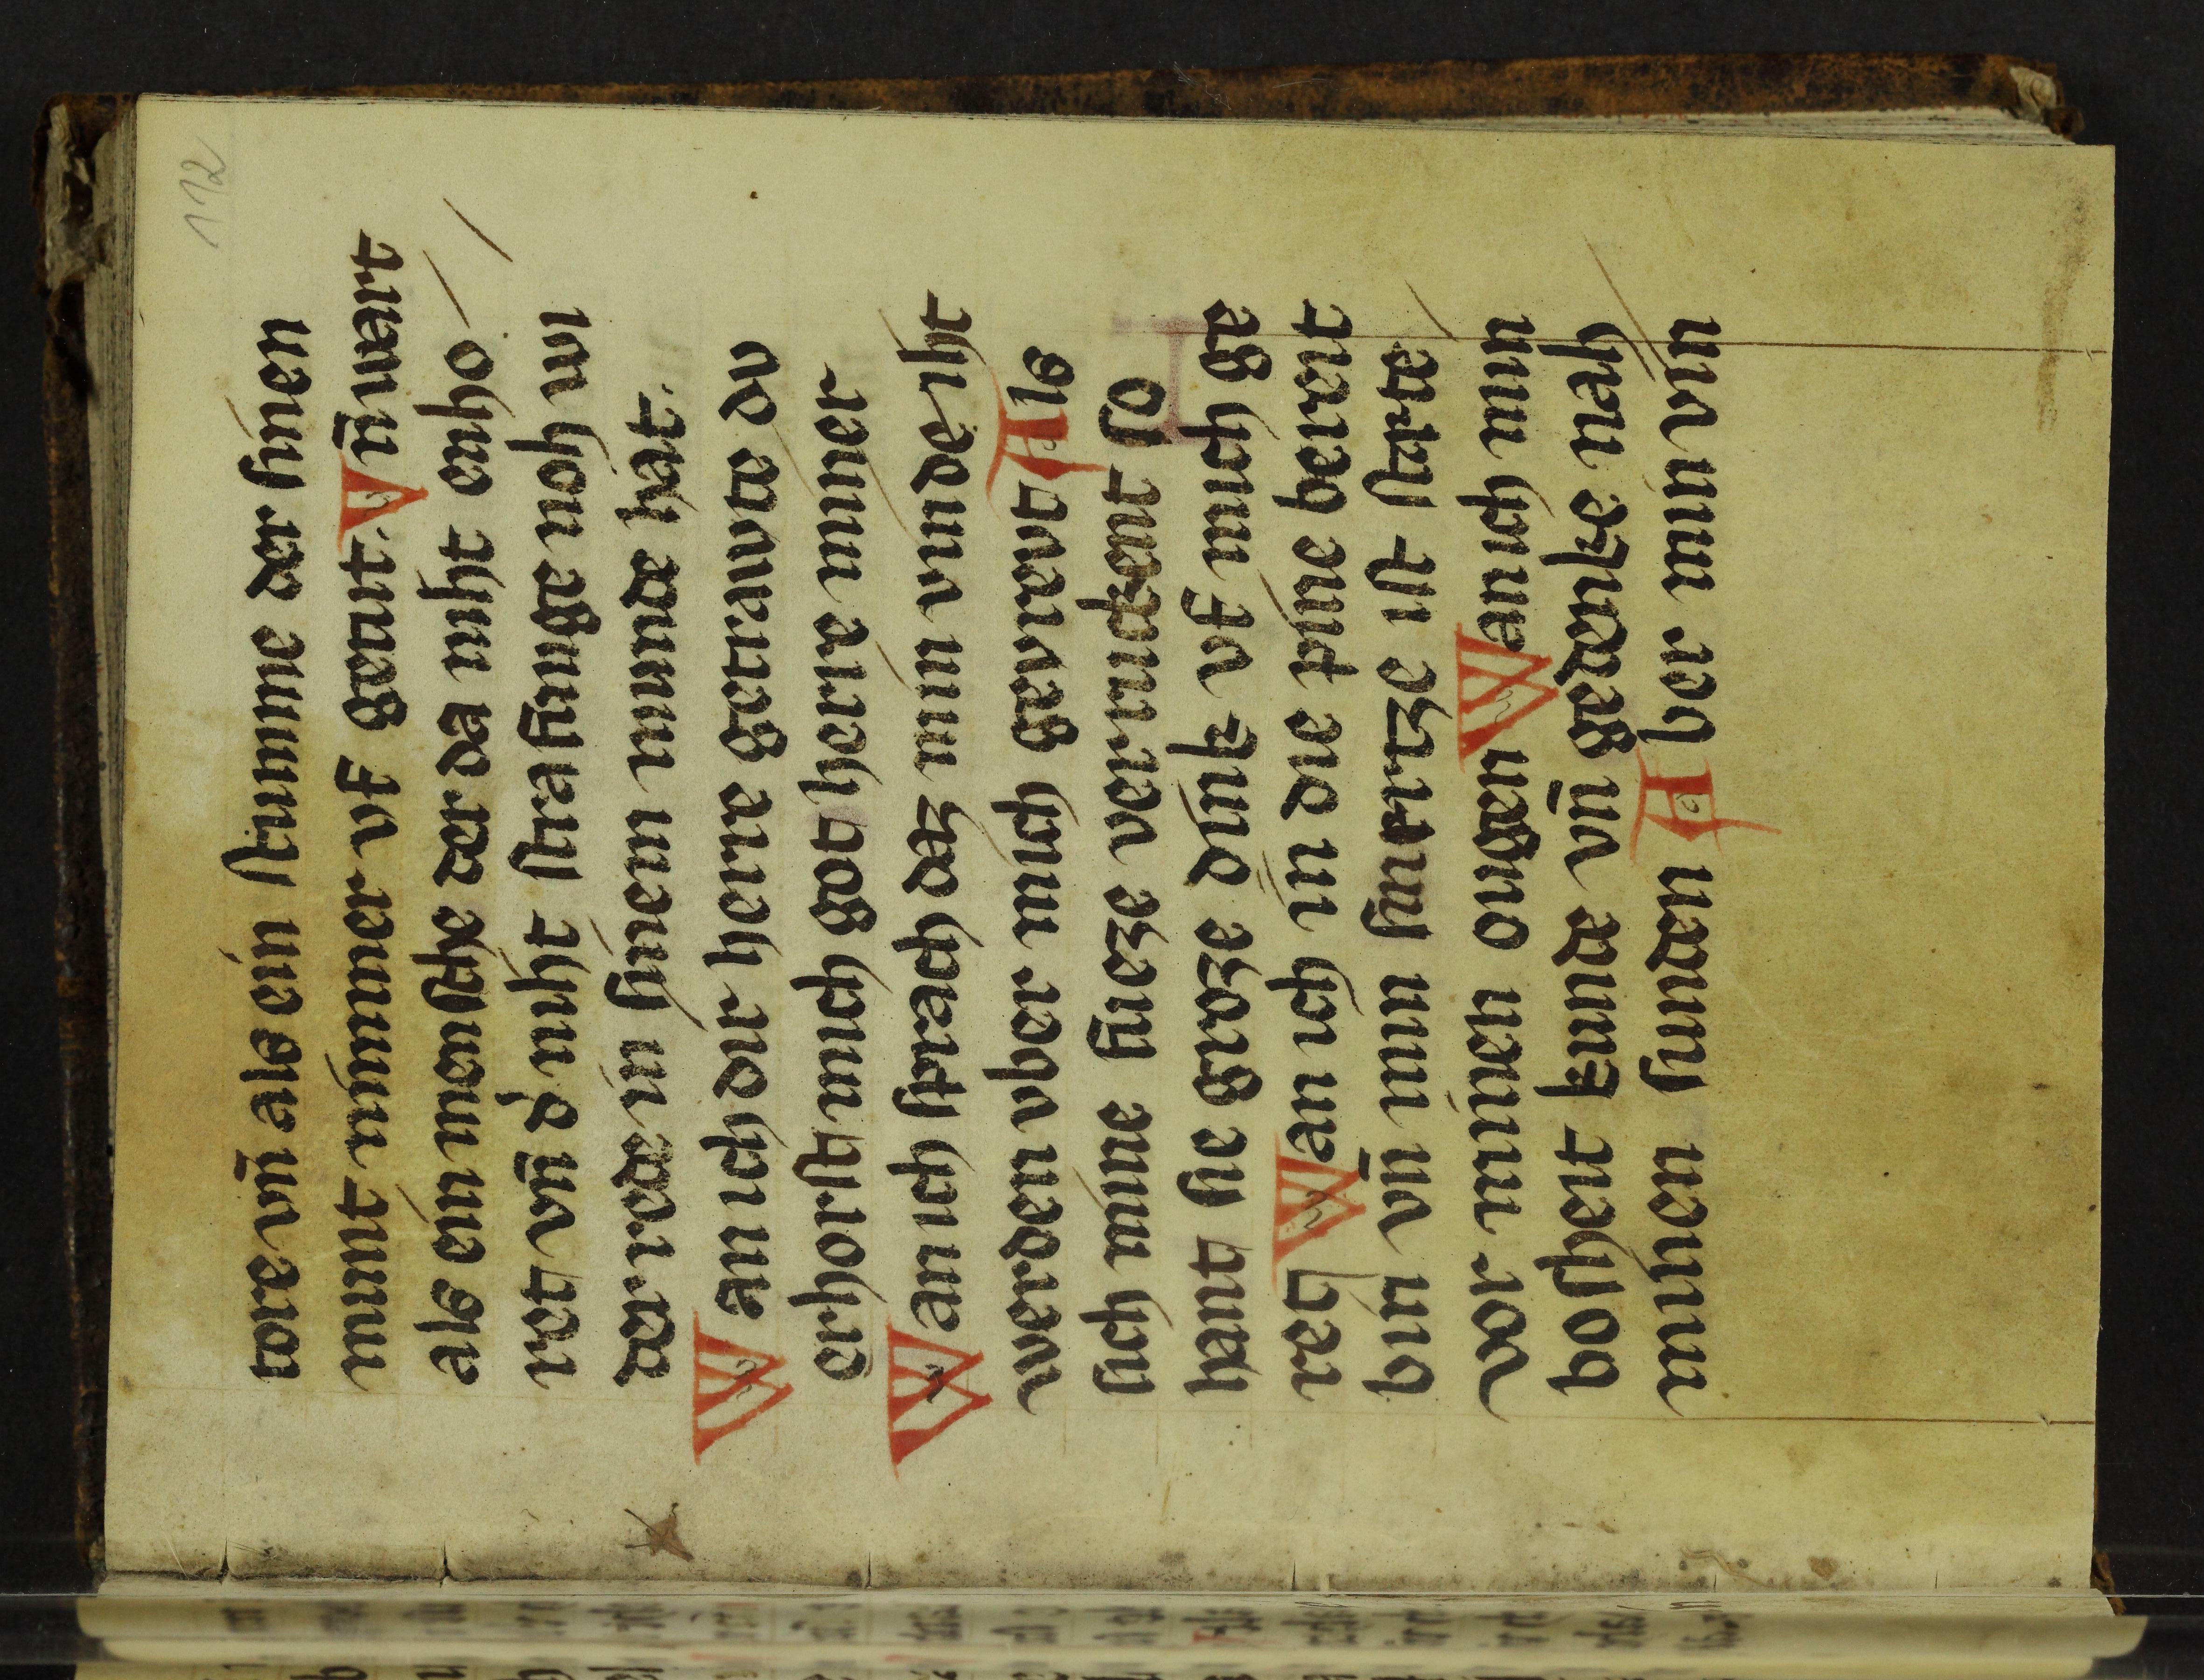 112
tore vn̄ als ein stumme der sinen
munt nimmer vf getut. Vn̄ wart
als ein mensche der da niht enho
ret vn̄ d' niht strafunge noh wi
der rede in sinem munde hat.
Wan ich dir herre getravte dv
erhorst mich got herre minner
Wan ich sprach dez min vinde iht
werden vber mich gevrevt Als
sich mine fueze verruckent so
hant sie groze dink vf mich ge
ret Wan ich in die pine bereit
bin vn̄ min smerze ist stete
vor minen ougen Wan ich min
bosheit kunde vn̄ gedenke nah
minen sunden Aber min vinn